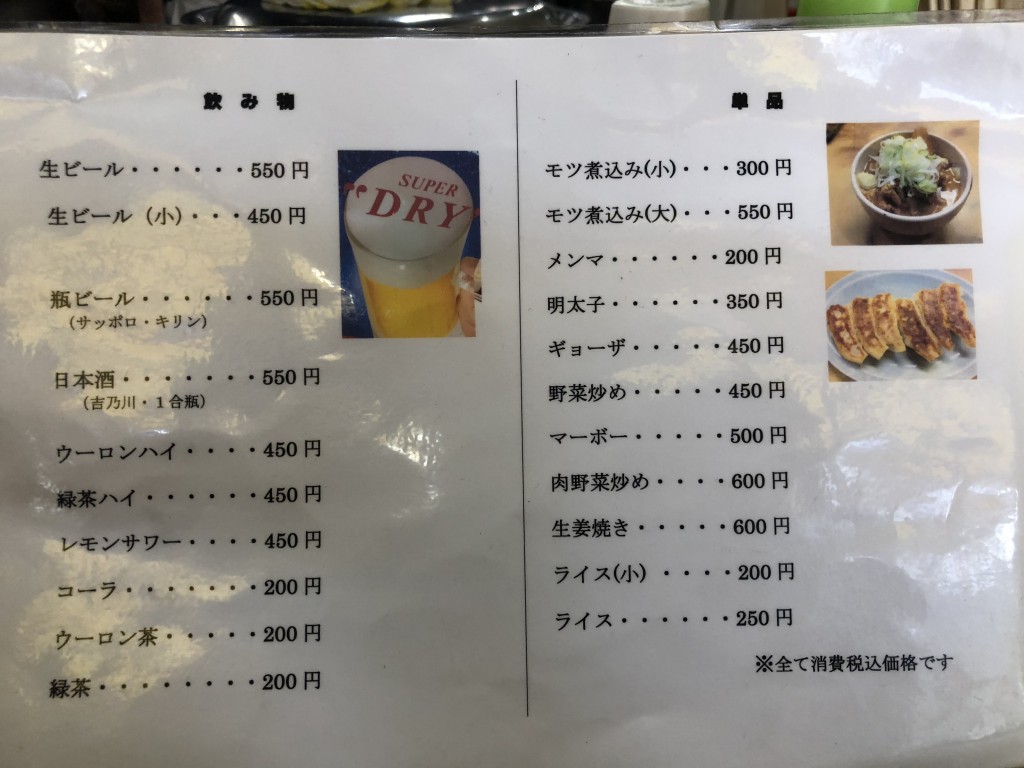 飲み物
生ビール・・・・・・550円
生ビール（小）・・・450円
瓶ビール・・・・・・550円
（サッポロ・キリン）
日本酒・・・・・・・550円
（吉乃川・１合瓶）
ウーロンハイ・・・・450円
緑茶ハイ・・・・・・450円
レモンサワー・・・・450円
コーラ・・・・・・・200円
ウーロン茶・・・・・200円
緑茶・・・・・・・・200円
SUPER
"DRY"
単品
モツ煮込み(小)・・・300円
モツ煮込み(大)・・・550円
メンマ・・・・・・200円
明太子・・・・・・350円
ギョーザ・・・・・450円
野菜炒め・・・・・450円
マーボー・・・・・500円
肉野菜炒め・・・・600円
生姜焼き・・・・・600円
ライス(小) ・・・・200円
ライス・・・・・・250円
※全て消費税込価格です